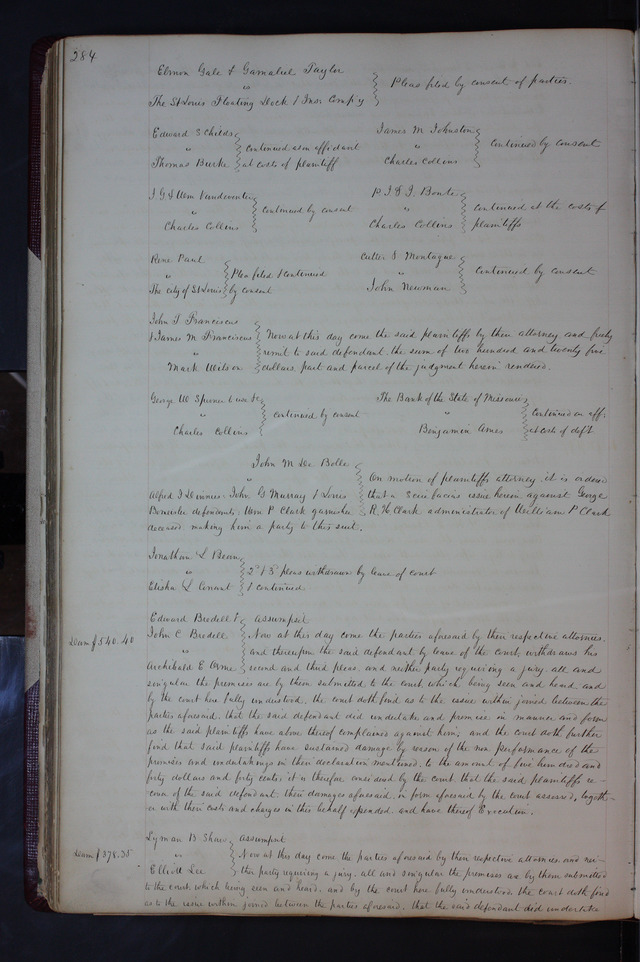 284
Elmon Gale & Gamaliel Taylor
vs
The St Louis Floating Dock & Ins: Comp'y
Pleas filed by consent of parties.
Edward S Childs
"
Thomas Burke
continued as on affidavit
at costs of plaintiff
James M Johnston
"
Charles Collins
continued by consent
J G & Wm Vandeventer
"
Charles Collins
continued by consent
P J & J. Bonte
"
Charles Collins
continued at the costs of
plaintiffs
Rene Paul
"
The city of St Louis
Plea filed & continued
by consent
Cutter S Montague
"
John Newman
continued by consent
John S Franciscus
& James M Franciscus
"
Mark Wilson
Now at this day come the said plaintiffs by their attorney and freely
remit to said defendant the sum of two hundred and twenty five
dollars, part and parcel of the judgment herein rendered.
George W Spooner
"
Charles Collins
continued by consent
The Bank of the State of Missouri
"
Benjamin Ames
continued on aff:
at costs of def't
John M De Bolle
"
Alfred J Dennis: John G Murray & Louis
defendants: Wm P Clark garnishee
deceased making him a party to this suit.
On motion of plaintiffs attorney. it is ordered
that a Scire facias issue herein against George
R. H Clark administrator of William P Clark
Jonathan L Bean
"
Elisha L
2d & 3d pleas withdrawn by leave of court
& continued
Dam $540.40
Edward Brodell &
John C Brodell
"
Archibald E Orme
Assumpsit
Now at this day come the parties aforesaid by their respective attornies.
and thereupon the said defendant by leave of the court, withdraws his
second and third pleas. and neither party requiring a jury, all and
singular the premises are by them submitted to the court, which being seen and heard, and
by the court here fully understood, the court doth find as to the issue within joined between the
parties aforesaid, that the said defendant did undertake and promise in manner and form
as the said plaintiffs have above thereof complained against him; and the court doth further
find that said plaintiffs have sustained damage by reason of the non performance of the
promises and undertakings in their declaration mentioned, to the amount of five hundred and
forty dollars and forty cents: it is therefore considered by the court, that the said plaintiffs re-
cover of the said defendant, their damages aforesaid, in form aforesaid by the court assessed, togeth-
er with their costs and charges in this behalf expended. and have thereof Execution.
Dam $378.35
Lyman B Shaw
"
Elliott Lee
Assumpsit
Now at this day come the parties aforesaid by their respective attornies, and nei-
ther party requiring a jury, all and singular the premises are by them submitted
to the court, which being seen and heard, and by the court here fully understood, the court doth find
as to the issue within joined between the parties aforesaid, that the said defendant did undertake